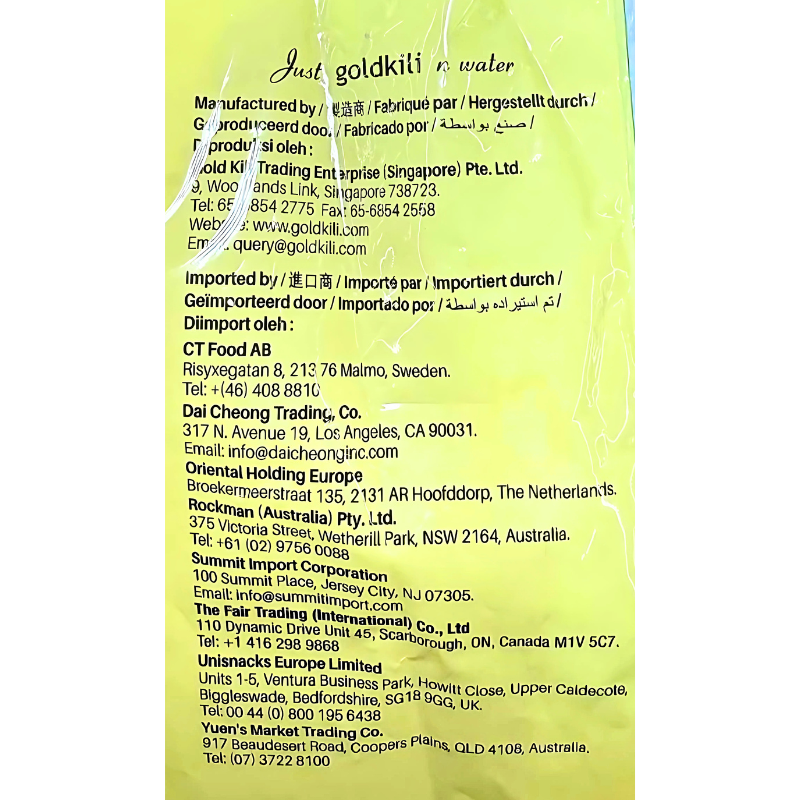 Just goldkili n water
Manufactured by / 製造商 / Fabriqué par / Hergestellt durch /
Geproduceerd door / Fabricado por / صنع بواسطة /
Diproduksi oleh :
Gold Kili Trading Enterprise (Singapore) Pte. Ltd.
9, Woodlands Link, Singapore 738723.
Tel: 65-6854 2775 Fax: 65-6854 2558
Website: www.goldkili.com
Email: query@goldkili.com
Imported by / 進口商 / Importé par / Importiert durch /
Geïmporteerd door / Importado por / تم استيراده بواسطة /
Diimport oleh :
CT Food AB
Risyxegatan 8, 213 76 Malmo, Sweden.
Tel: +(46) 408 8810
Dai Cheong Trading, Co.
317 N. Avenue 19, Los Angeles, CA 90031.
Email: info@daicheonginc.com
Oriental Holding Europe
Broekermeerstraat 135, 2131 AR Hoofddorp, The Netherlands.
Rockman (Australia) Pty. Ltd.
375 Victoria Street, Wetherill Park, NSW 2164, Australia.
Tel: +61 (02) 9756 0088
Summit Import Corporation
100 Summit Place, Jersey City, NJ 07305.
Email: Info@summitimport.com
The Fair Trading (International) Co., Ltd
110 Dynamic Drive Unit 45, Scarborough, ON, Canada M1V 5C7.
Tel: +1 416 298 9868
Unisnacks Europe Limited
Units 1-5, Ventura Business Park, Howitt Close, Upper Caldecote,
Biggleswade, Bedfordshire, SG18 9GG, UK.
Tel: 00 44 (0) 800 195 6438
Yuen's Market Trading Co.
917 Beaudesert Road, Coopers Plains, QLD 4108, Australia.
Tel: (07) 3722 8100